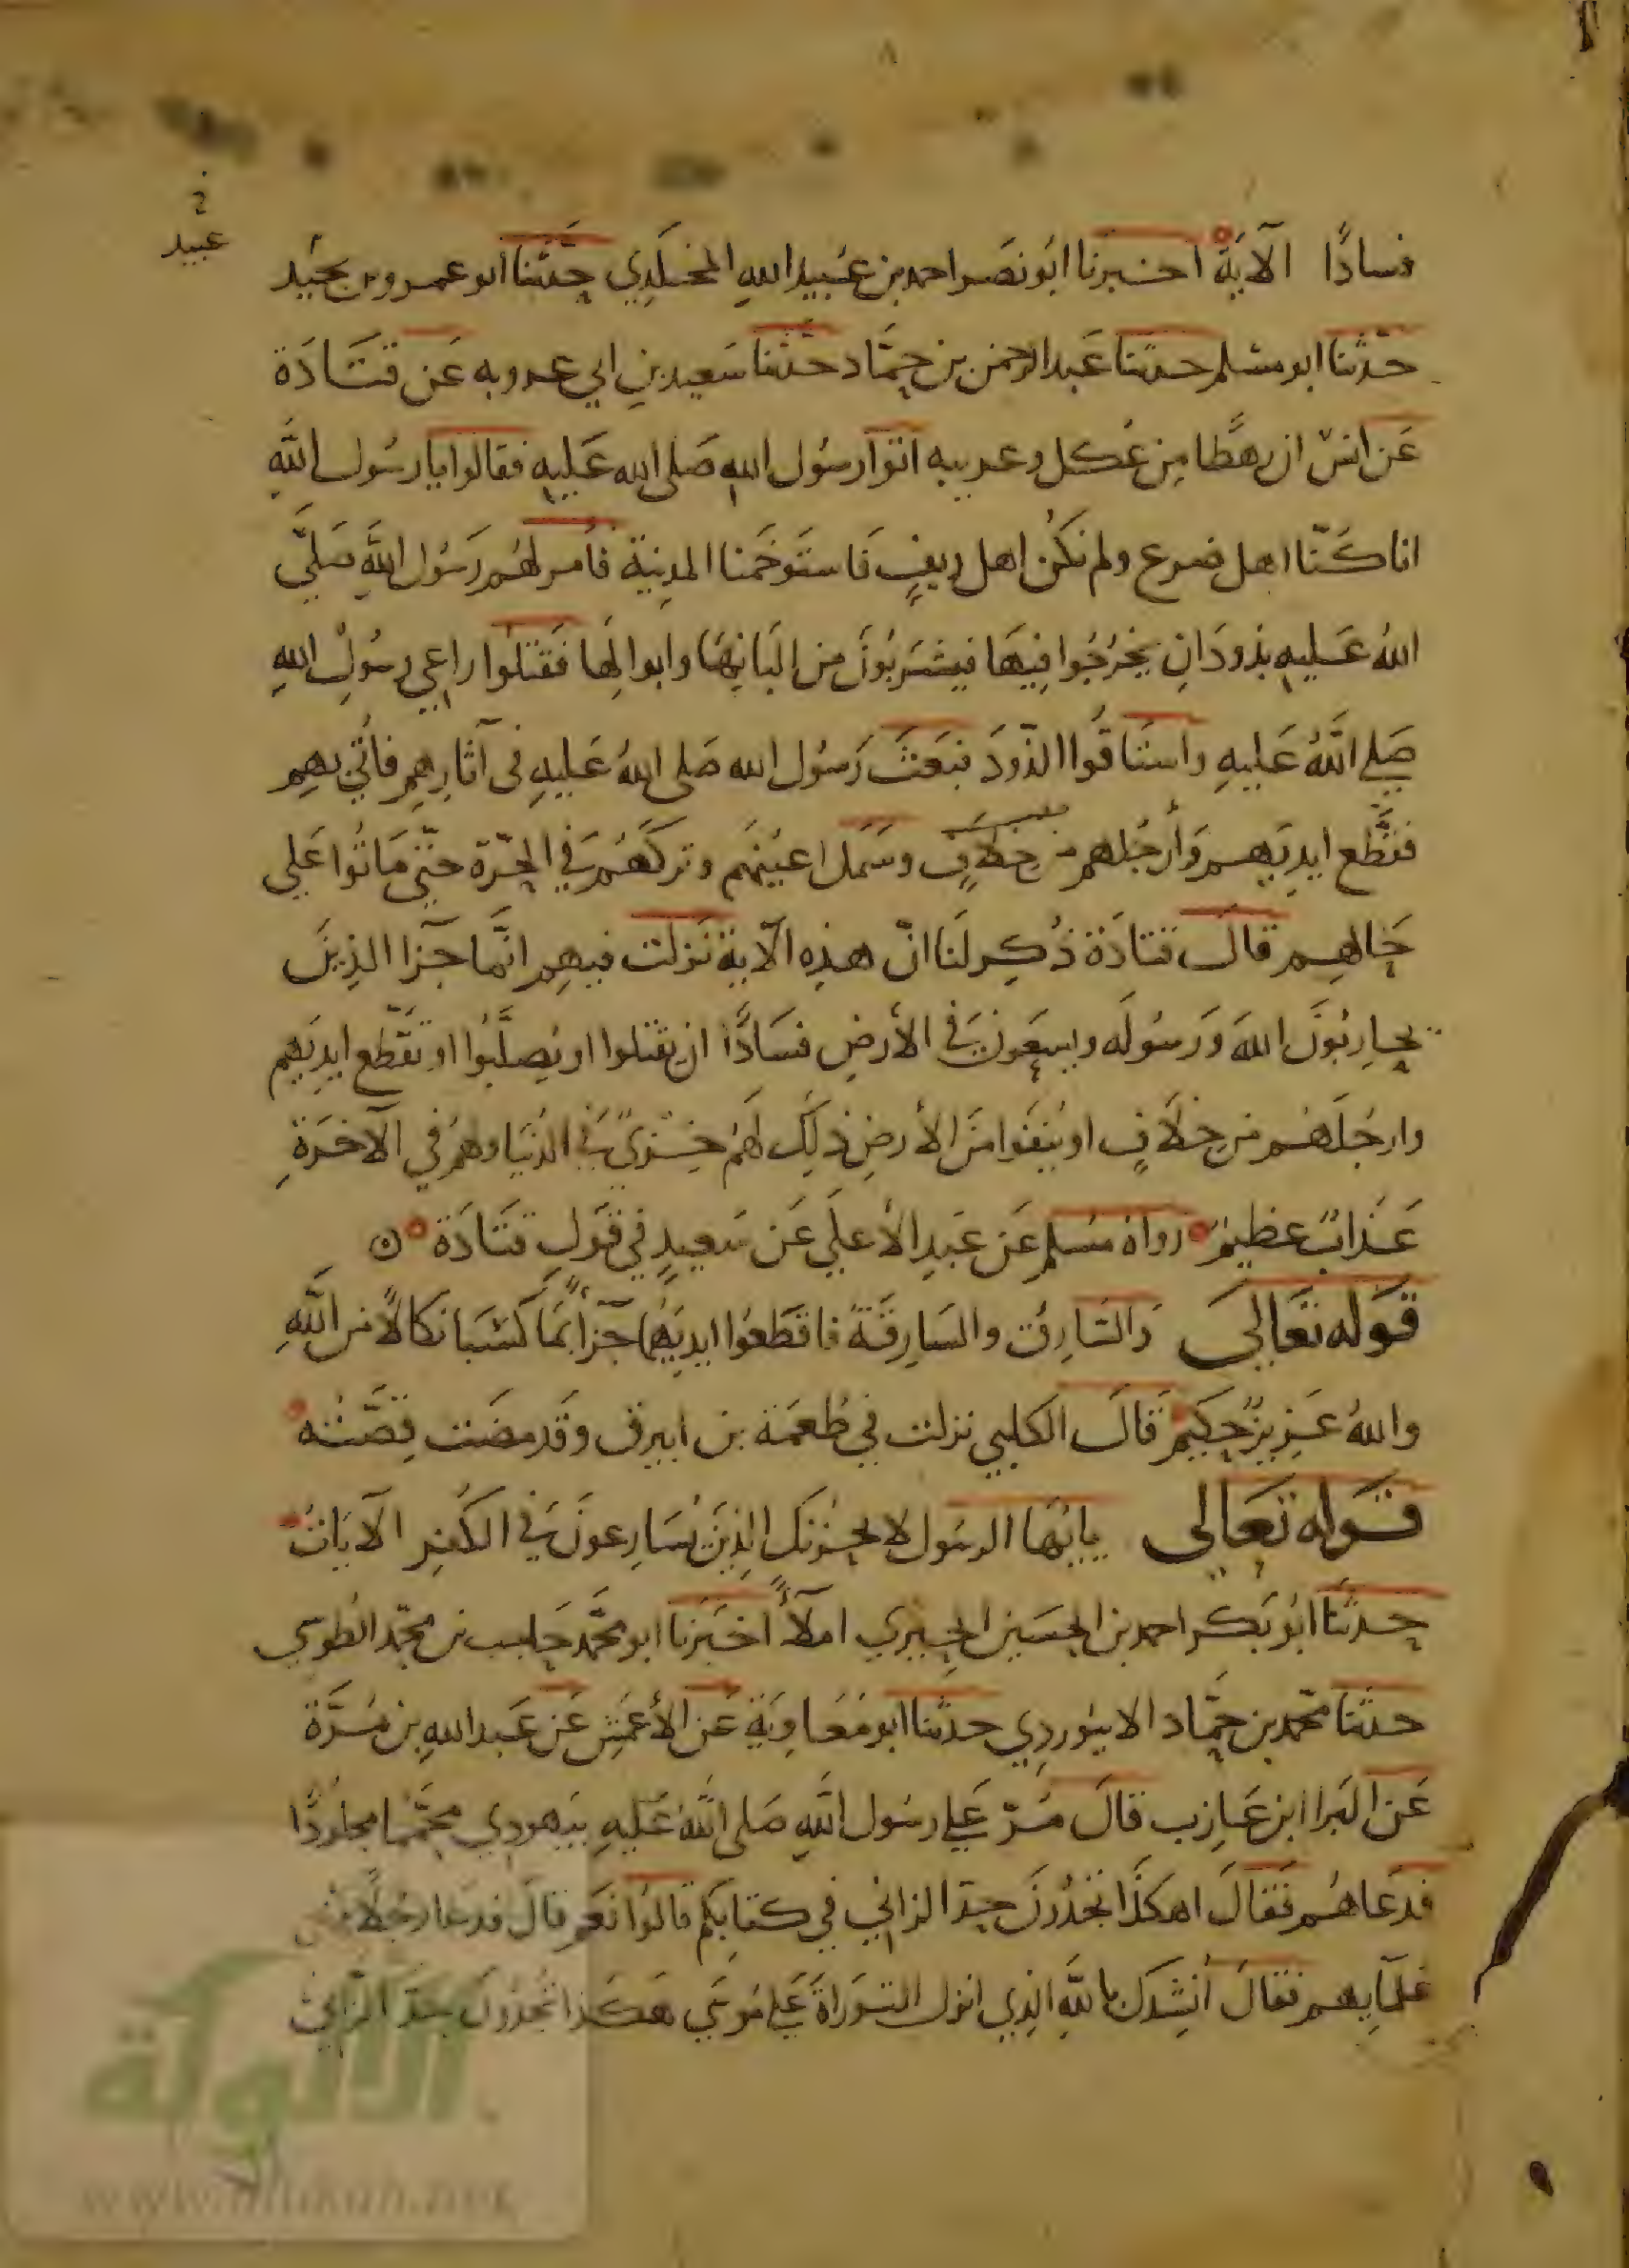 ٨
عبيد
فسادًا الآية اخبرنا ابو نصر احمد بن عبيد الله المخلدي حدثنا ابو عمرو بن نجيد
حدثنا ابو مسلم حدثنا عبد الرحمن بن حماد حدثنا سعيد بن ابي عروبه عن قتادة
عن انس ان رهطا من عكل وعرينه اتوا رسول الله صلى الله عليه فقالوا يا رسول الله
انا كنا اهل ضرع ولم نكن اهل ريف فاستوخمنا المدينة فأمر لهم رسول الله صلى
الله عليه بذود ان يخرجوا فيها فيشربون من البانها وابوالها فقتلوا راعي رسول الله
صلى الله عليه واستاقوا الذود فبعث رسول الله صلى الله عليه في آثارهم فأتي بهم
فقطع ايديهم وأرجلهم من خلاف وسمل اعينهم وتركهم في الحرة حتى ماتوا على
حالهم قال قتادة ذكر لنا ان هذه الآية نزلت فيهم انما جزا الذين
يحاربون الله ورسوله ويسعون في الأرض فسادًا ان يقتلوا او يصلبوا او تقطع ايديهم
وارجلهم من خلاف او ينفوا من الأرض ذلك لهم خزي في الدنيا ولهم في الآخرة
عذاب عظيم رواه مسلم عن عبد الأعلى عن سعيد في قول قتادة ه
قوله تعالى والسارق والسارقة فاقطعوا ايديهما جزآءً بما كسبا نكالاً من الله
والله عزيز حكيم قال الكلبي نزلت في طعمة بن ابيرق وقد مضت قصته
قوله تعالى يايها الرسول لا يحزنك الذين يسارعون في الكفر الآيات
حدثنا ابو بكر احمد بن الحسين الحيري املآءً اخبرنا ابو محمد حاجب بن محمد الطوسي
حدثنا محمد بن حماد الابيوردي حدثنا ابو معاوية عن الأعمش عن عبد الله بن مرة
عن البرا ابن عازب قال مر على رسول الله صلى الله عليه بيهودي محمما مجلودًا
فدعاهم فقال اهكذا تجدون حد الزاني في كتابكم قالوا نعم قال فدعا رجلاً من
علمآيهم فقال أنشدك بالله الذي انزل التوراة على موسى هكذا تجدون حد الزاني
الألوكة
www.alukah.net